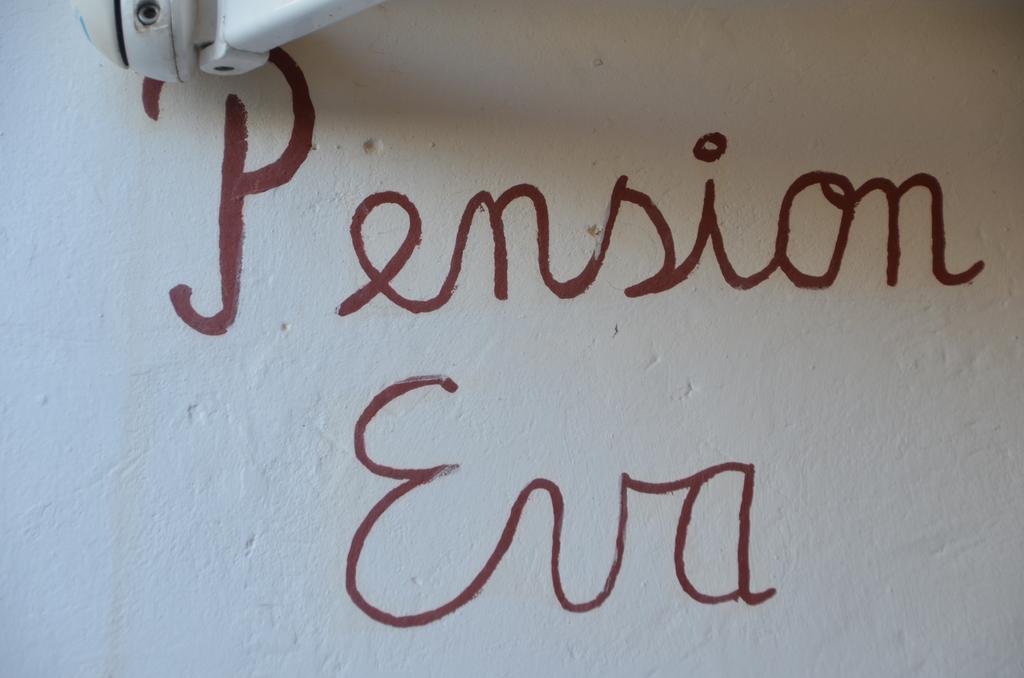 Pension
Eva